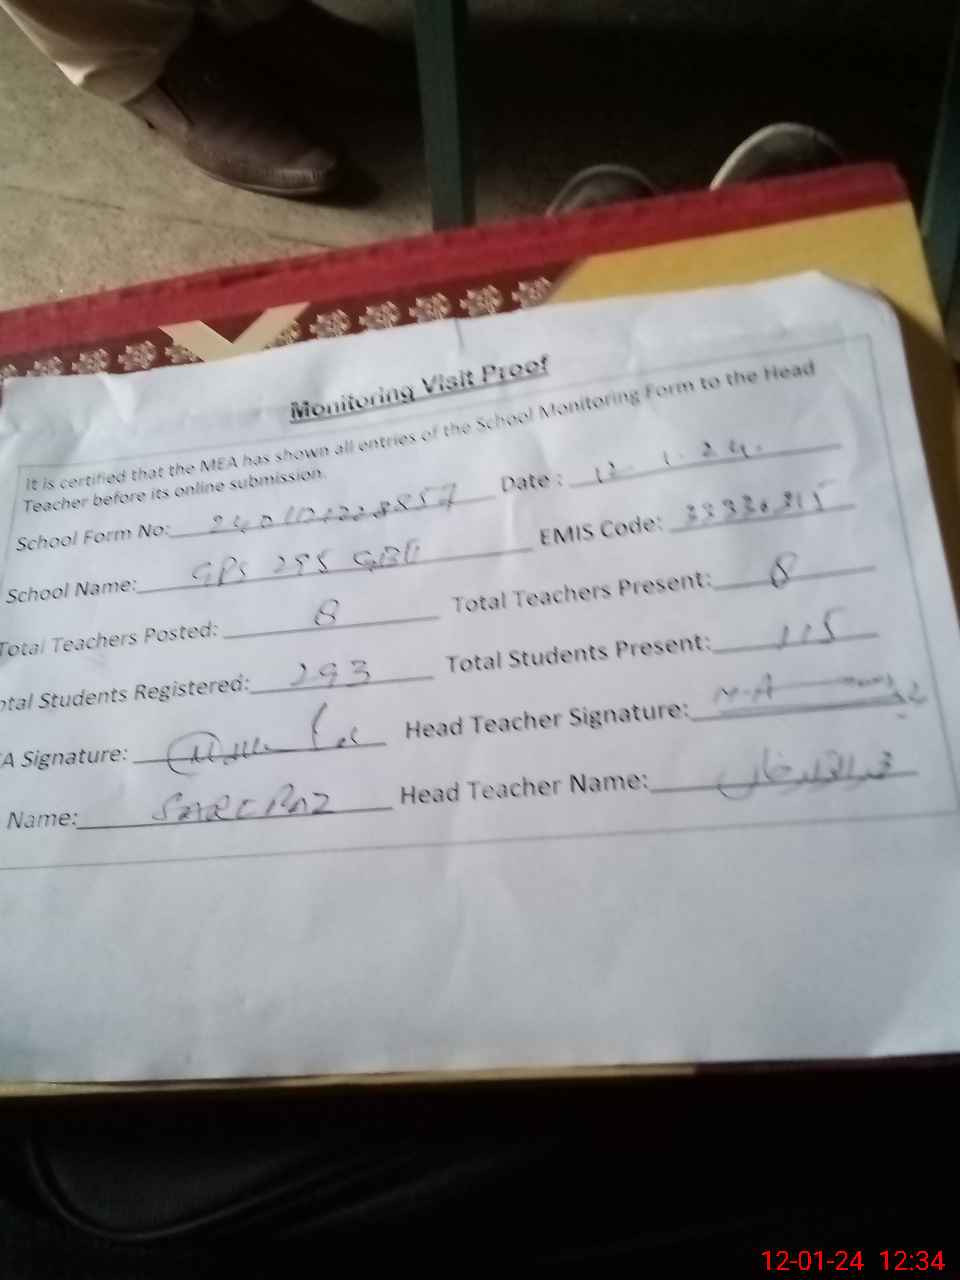 Monitoring Visit Proof
It is certified that the MEA has shown all entries of the School Monitoring Form to the Head
Teacher before its online submission.
School Form No: Date: 12-1-24.
School Name: GPS 295 GB EMIS Code: 33330315
Total Teachers Posted: 8 Total Teachers Present: 8
otal Students Registered: 293 Total Students Present: 115
A Signature: Head Teacher Signature:
Name: Head Teacher Name:
12-01-24 12:34